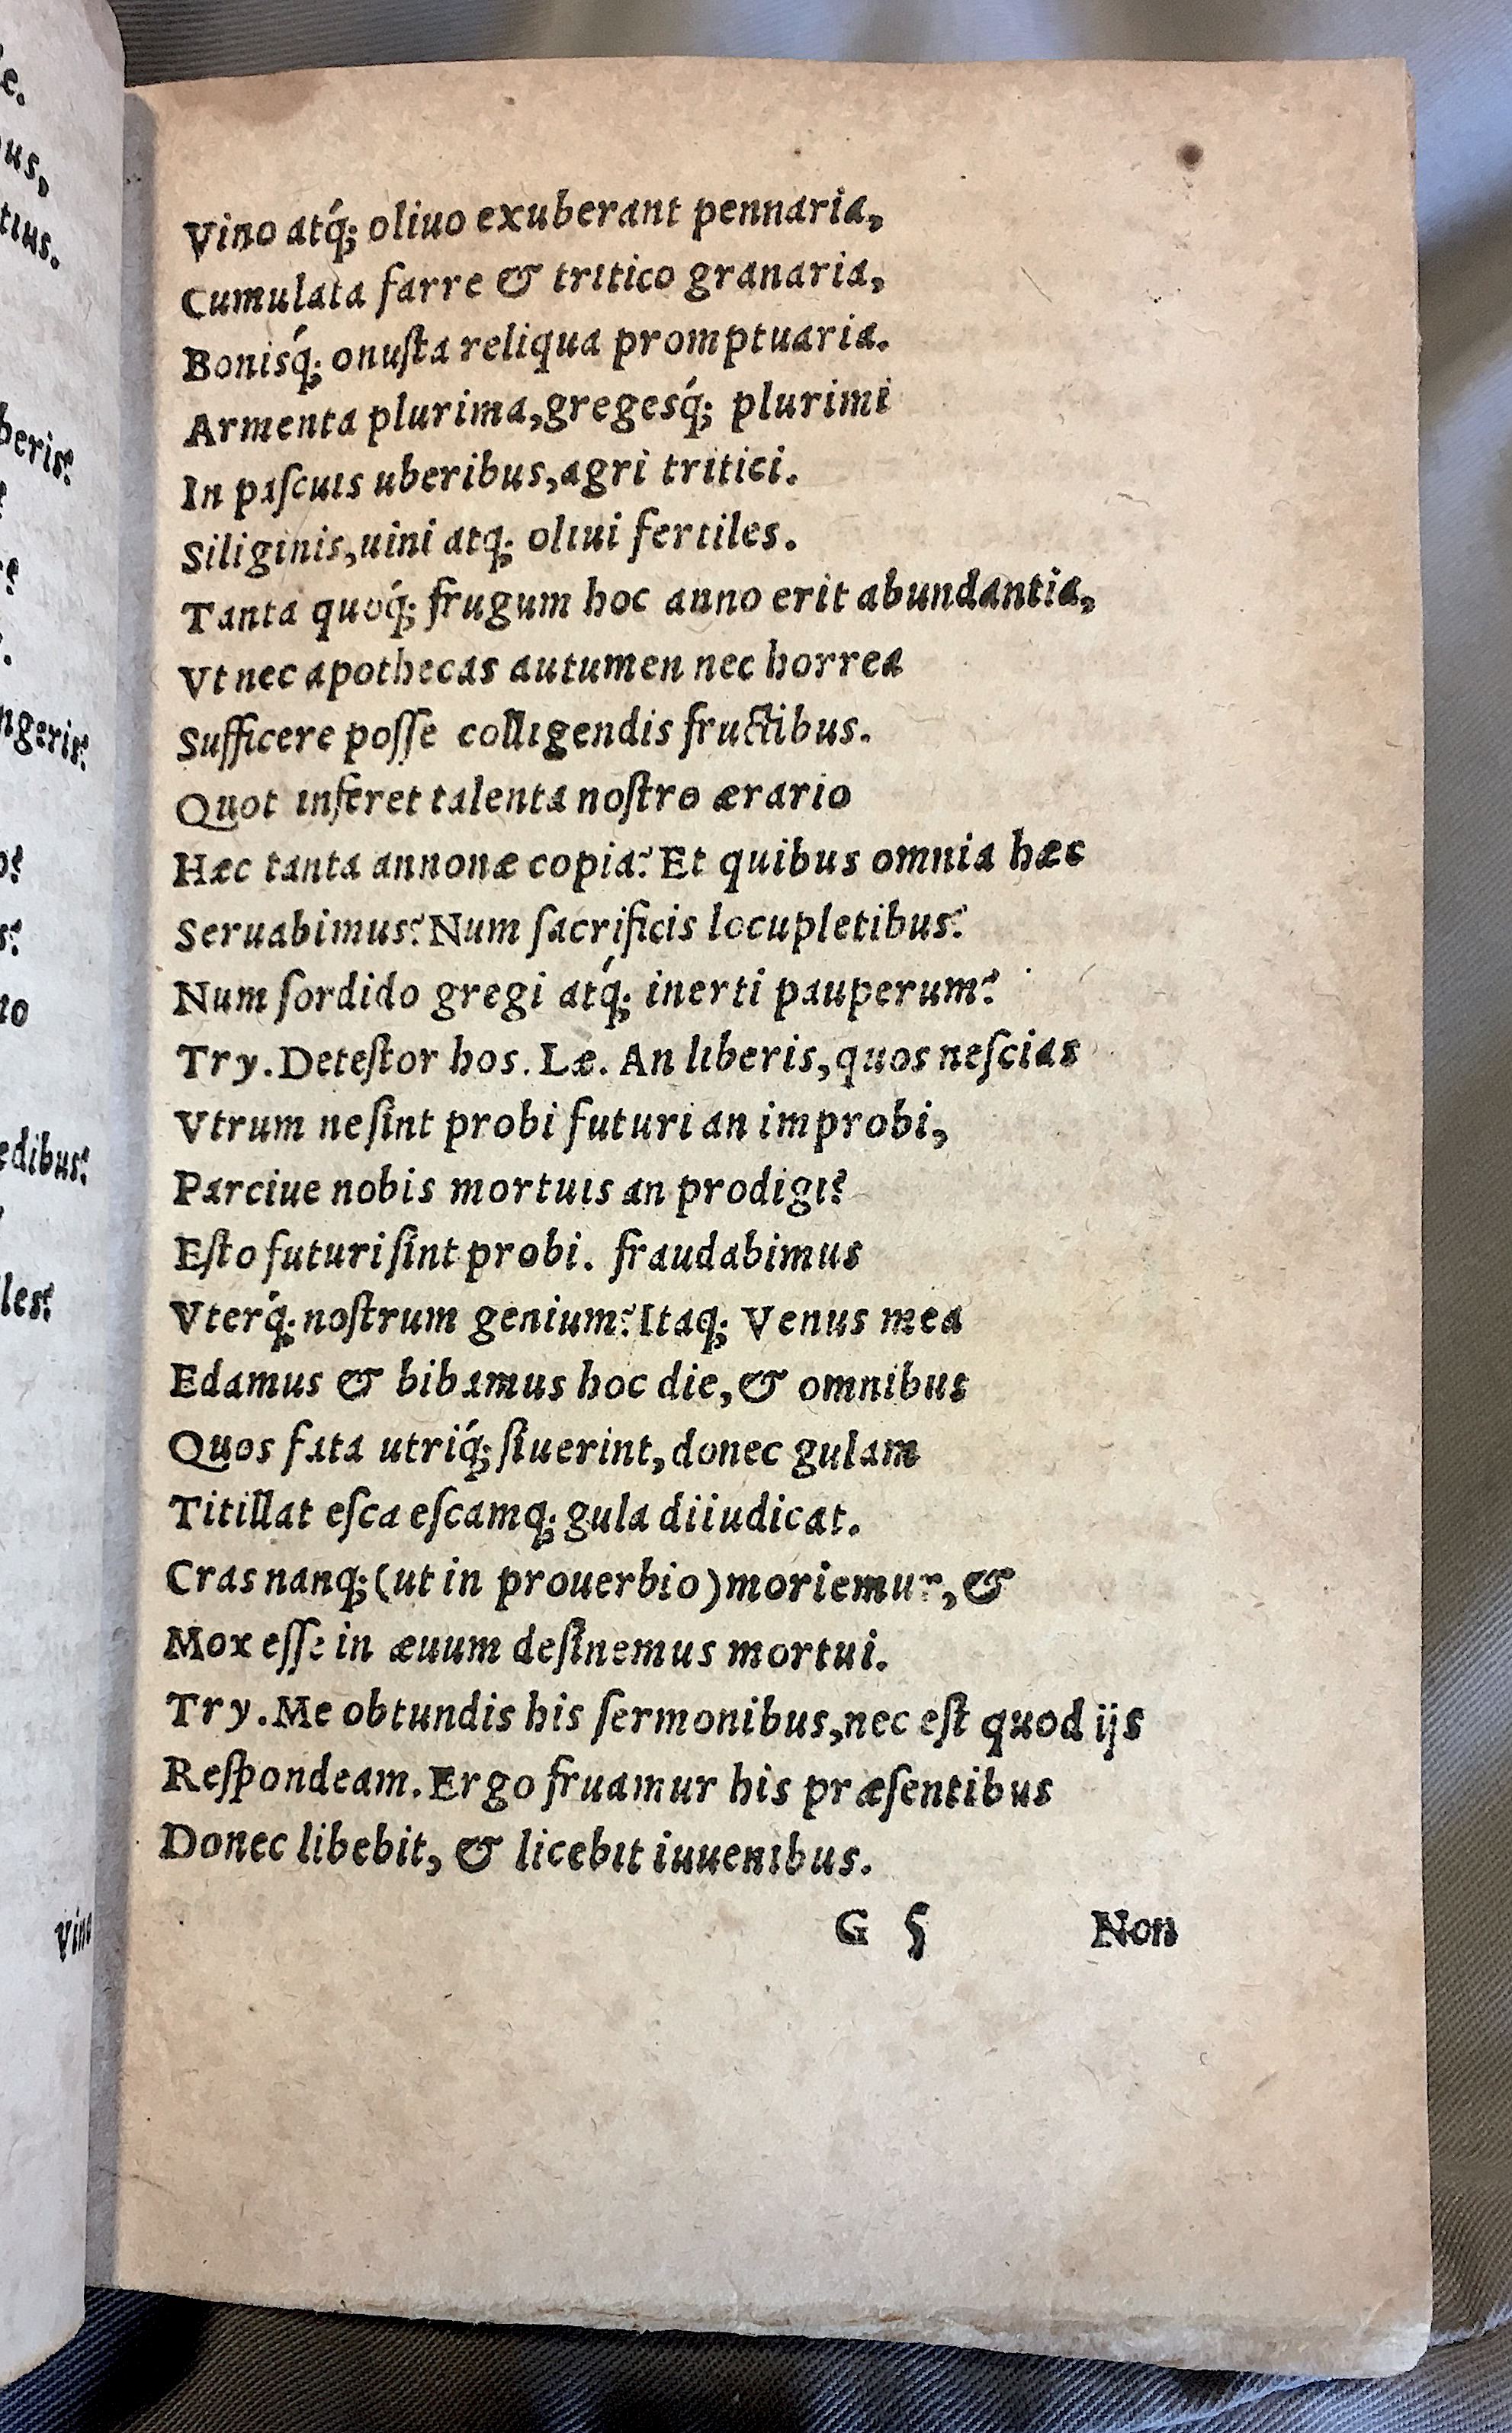 Vino atq́; oliuo exuberant pennaria,
Cumulata farre & tritico granaria,
Bonisq́; onuſta reliqua promptuaria.
Armenta plurima,gregesq́; plurimi
In paſcuis uberibus,agri tritici.
Siliginis,uini atq; oliui fertiles.
Tanta quoq́; frugum hoc anno erit abundantia,
Vt nec apothecas autumen nec horrea
Sufficere poſſe colligendis fructibus.
Quot inferet talenta noſtro ærario
Hæc tanta annonæ copia? Et quibus omnia hæc
Seruabimus? Num ſacrificis locupletibus?
Num ſordido gregi atq́; inerti pauperum?
Try. Deteſtor hos. Læ. An liberis,quos neſcias
Vtrum ne ſint probi futuri an improbi,
Parciue nobis mortuis an prodigi?
Eſto futuri ſint probi. fraudabimus
Vterq́; noſtrum genium? Itaq; Venus mea
Edamus & bibamus hoc die,& omnibus
Quos fata utriq́; ſiuerint,donec gulam
Titillat eſca eſcamq; gula diiudicat.
Cras nanq;(ut in prouerbio)moriemur,&
Mox eſſe in æuum deſinemus mortui.
Try. Me obtundis his ſermonibus,nec eſt quod ijs
Reſpondeam. Ergo fruamur his præſentibus
Donec libebit, & licebit iuuenibus.
G 5 Non